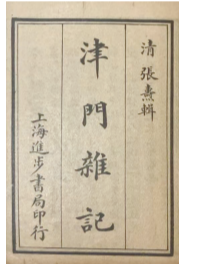 清張燾輯
津門雜記
上海進步書局印行